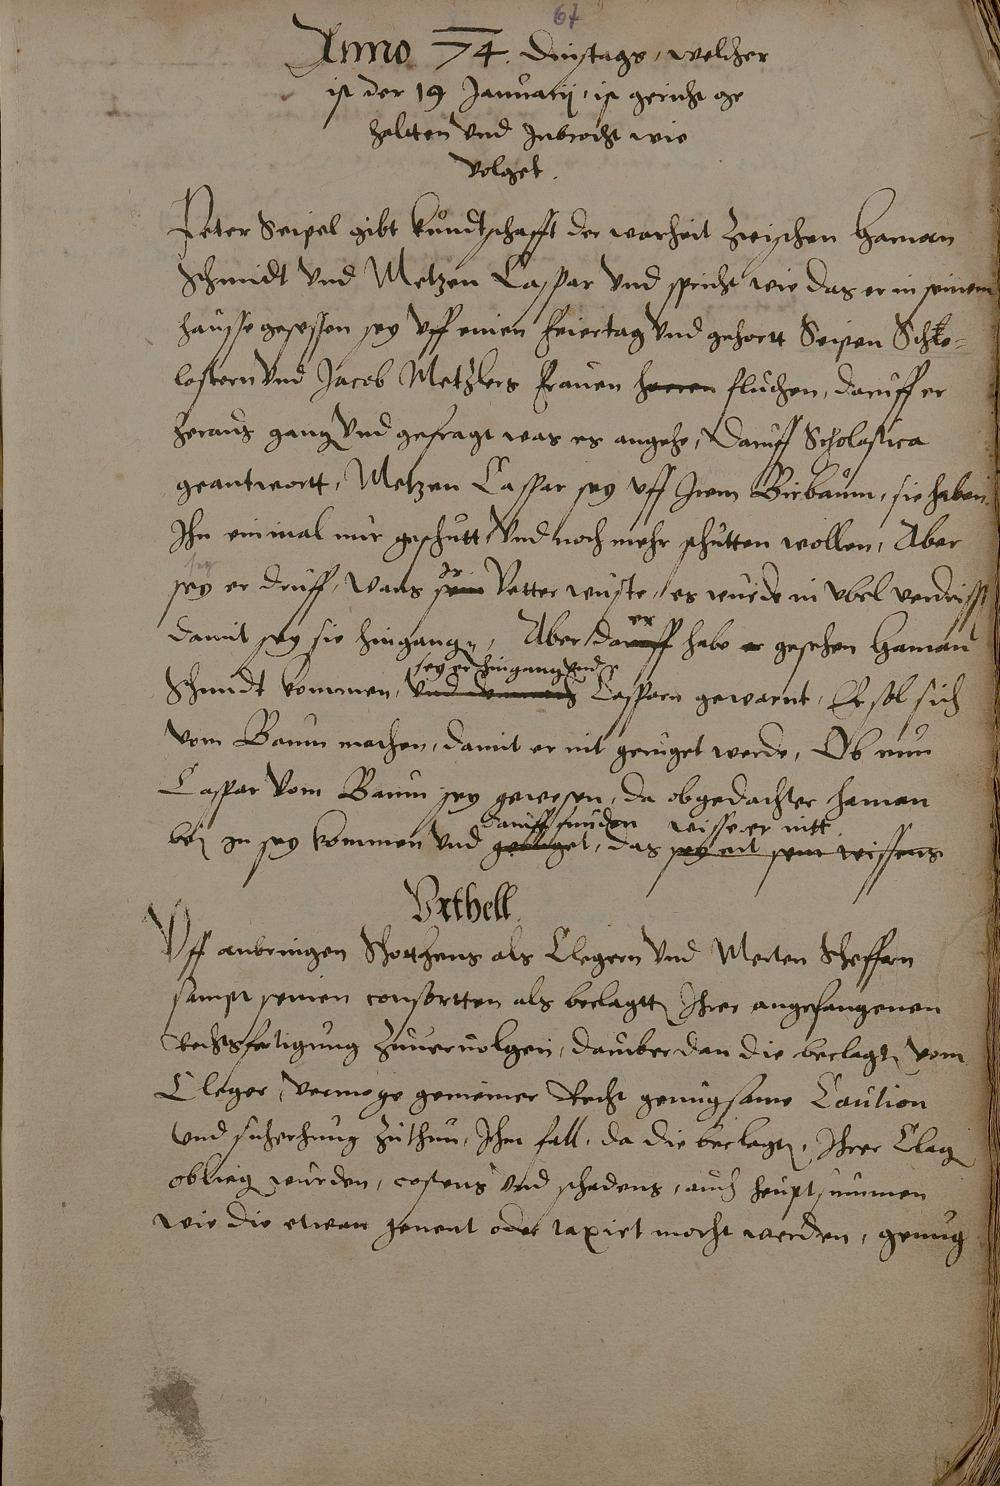 67
Anno 74. Dinstags, welcher
ist der 19 Januarij, ist gericht ge
haltten vnd Inbracht wie
volget.
Peter Seipel gibt kundtschafft der warheit zwischen Haman
Schmidt vnd Metzen Caspar vnd spricht wie das er in seinem
hausse gesessen sey vff einen feiertag vnd gehortt Seipen Scho-
lastern vnd Jacob Metzlers frauen horen fluchen, daruff er
heraus gang vnd gefragt was es angehe, Daruff Scholastica
geantwortt, Metzen Caspar sey vff Irem Birbaum, sie haben
Ihn ein mal nur geschutt vnd noch mehr schutten wollen, Aber
sey
ir
sey er druff, wans sein Vetter wuste, es wurde in vbel verdrisst
er
damit sey sie hingangen, Aber daruff habe er gesehen Haman
sey er hingang vnd
Schmidt kommen, vnd demnach Casparn gewarnt, Er sol sich
vom Baum machen, damit er nit geruget werde, Ob nun
Caspar vom Baum sey gewesen, da obgedachter haman
daruff funden wisse er nitt
bej in sey kommen vnd geruget, das sey nit sein wissens
Vrthell.
Vff anbringen als Clegern vnd Merten Scheffern
sampt seinen consortten als beclagtten Ihrer angefangenen
Rechtsfertigung zuueruolgen, darüber dan die beclagten vom
Cleger, vermoge gemeiner Recht genugsame Caution
vnd sicherhung zuthun, Ihm fall, da die beclagten, Ihrer Clag
obliegen wurden, costens vnd schadens, auch heuptsummen
wie die etwan genent oder taxirt mocht werden, genug